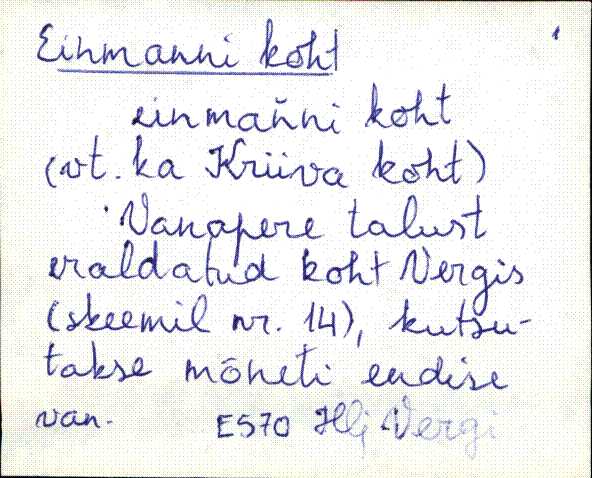 Einmanni koht 1
einmańni koht
(vt. ka Kriiva koht)
Vanapere talust
eraldatud koht Vergis
(skeemil nr. 14), kutsu-
takse mõneti endise
van. E570 Hlj Vergi